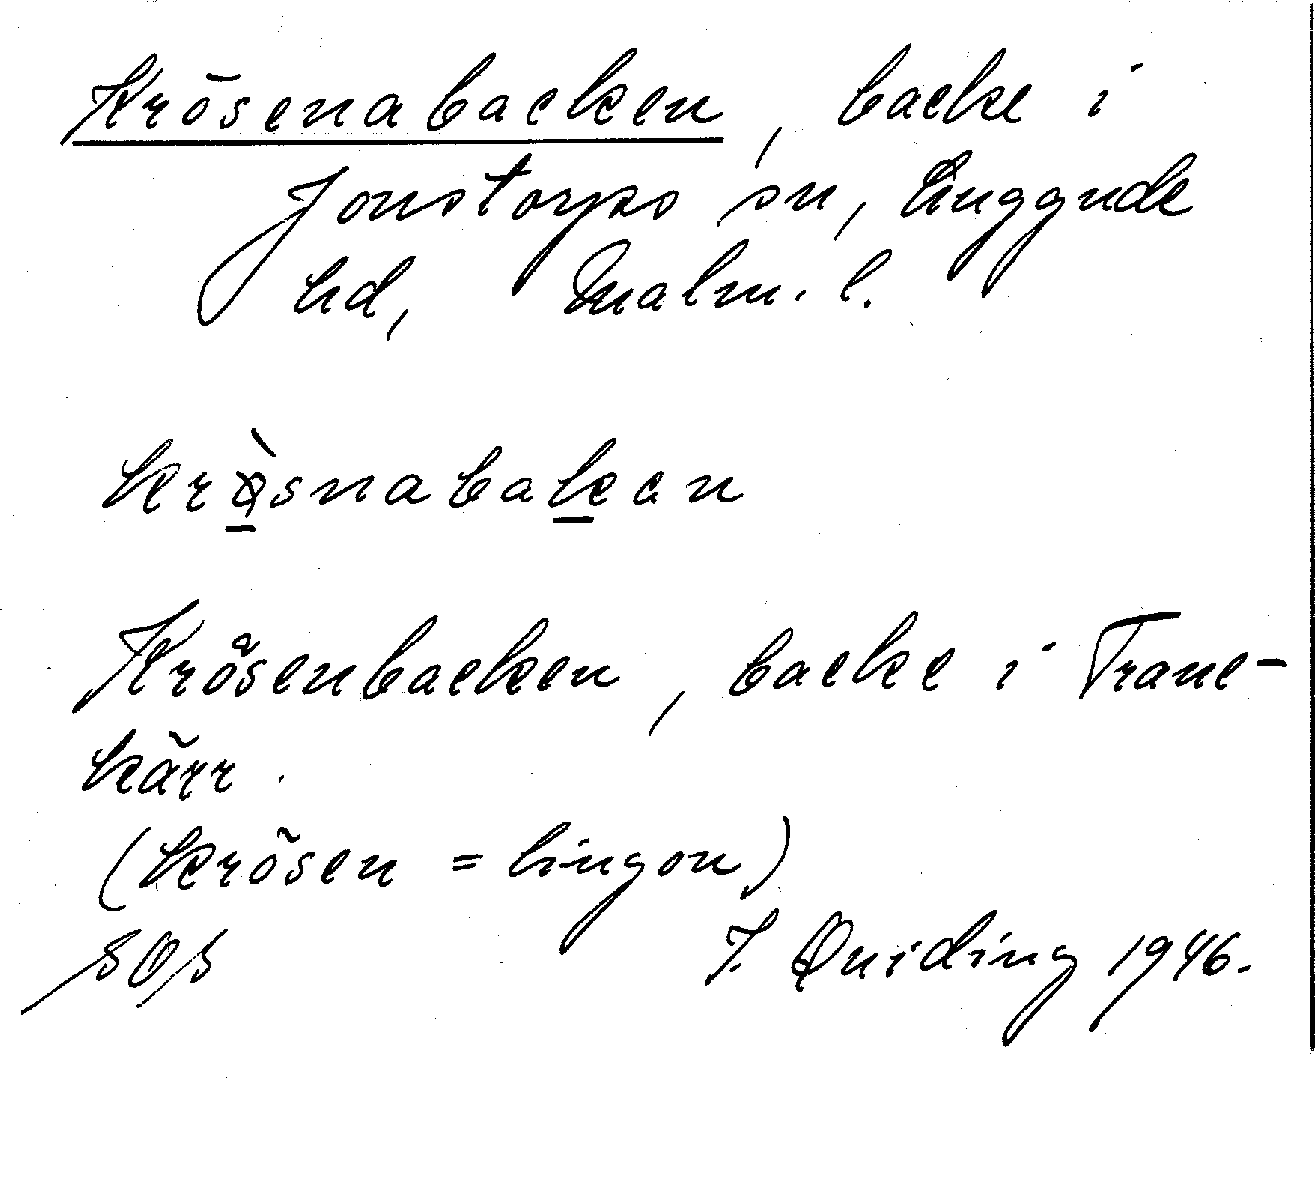 Krösenabacken, backe i
Jonstorps sn, Luggude
hd, Malm. l.
Krösenbacken, backe i Trane-
kärr.
(krösen = lingon)
SOS J. Quiding 1946.